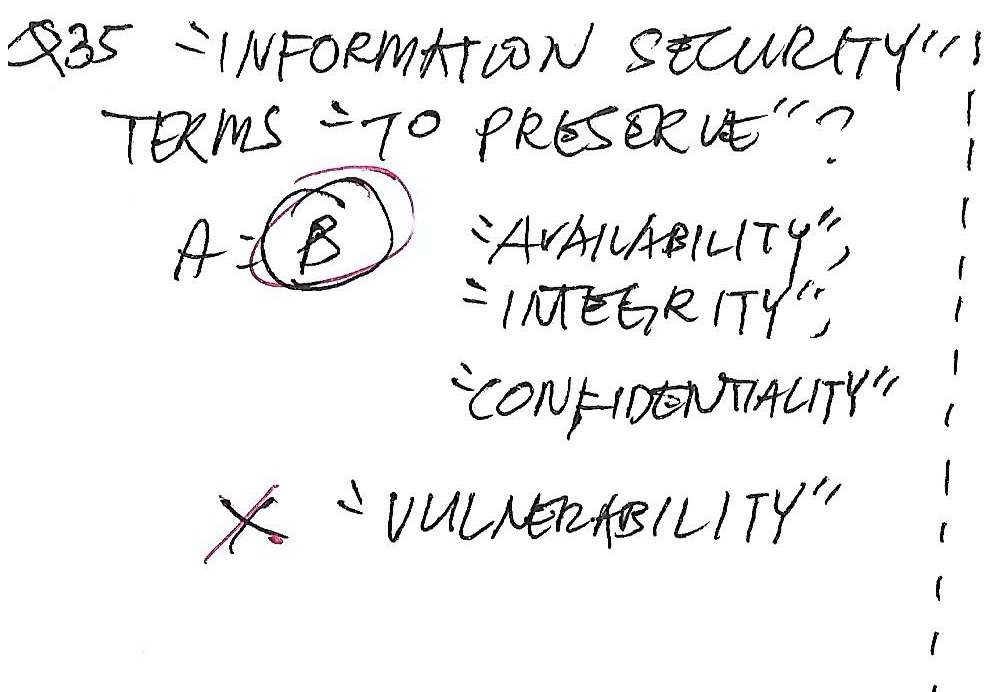 Q35 "INFORMATION SECURITY"
TERMS "TO PRESERVE"?
A: B "AVAILABILITY",
"INTEGRITY",
"CONFIDENTIALITY"
X. "VULNERABILITY"